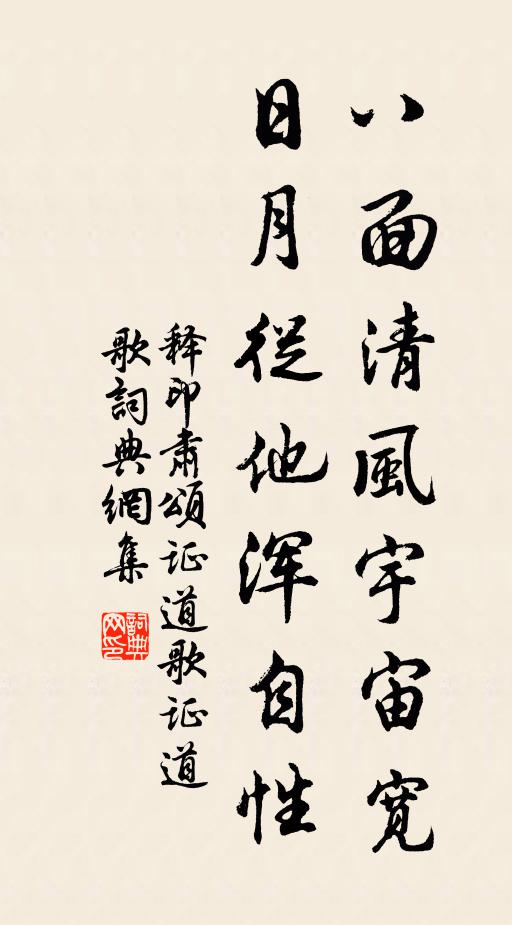 八面清風宇宙寬
日月從他渾自性
释印肃頌证道歌证道
歌詞典網集
詞典
网印